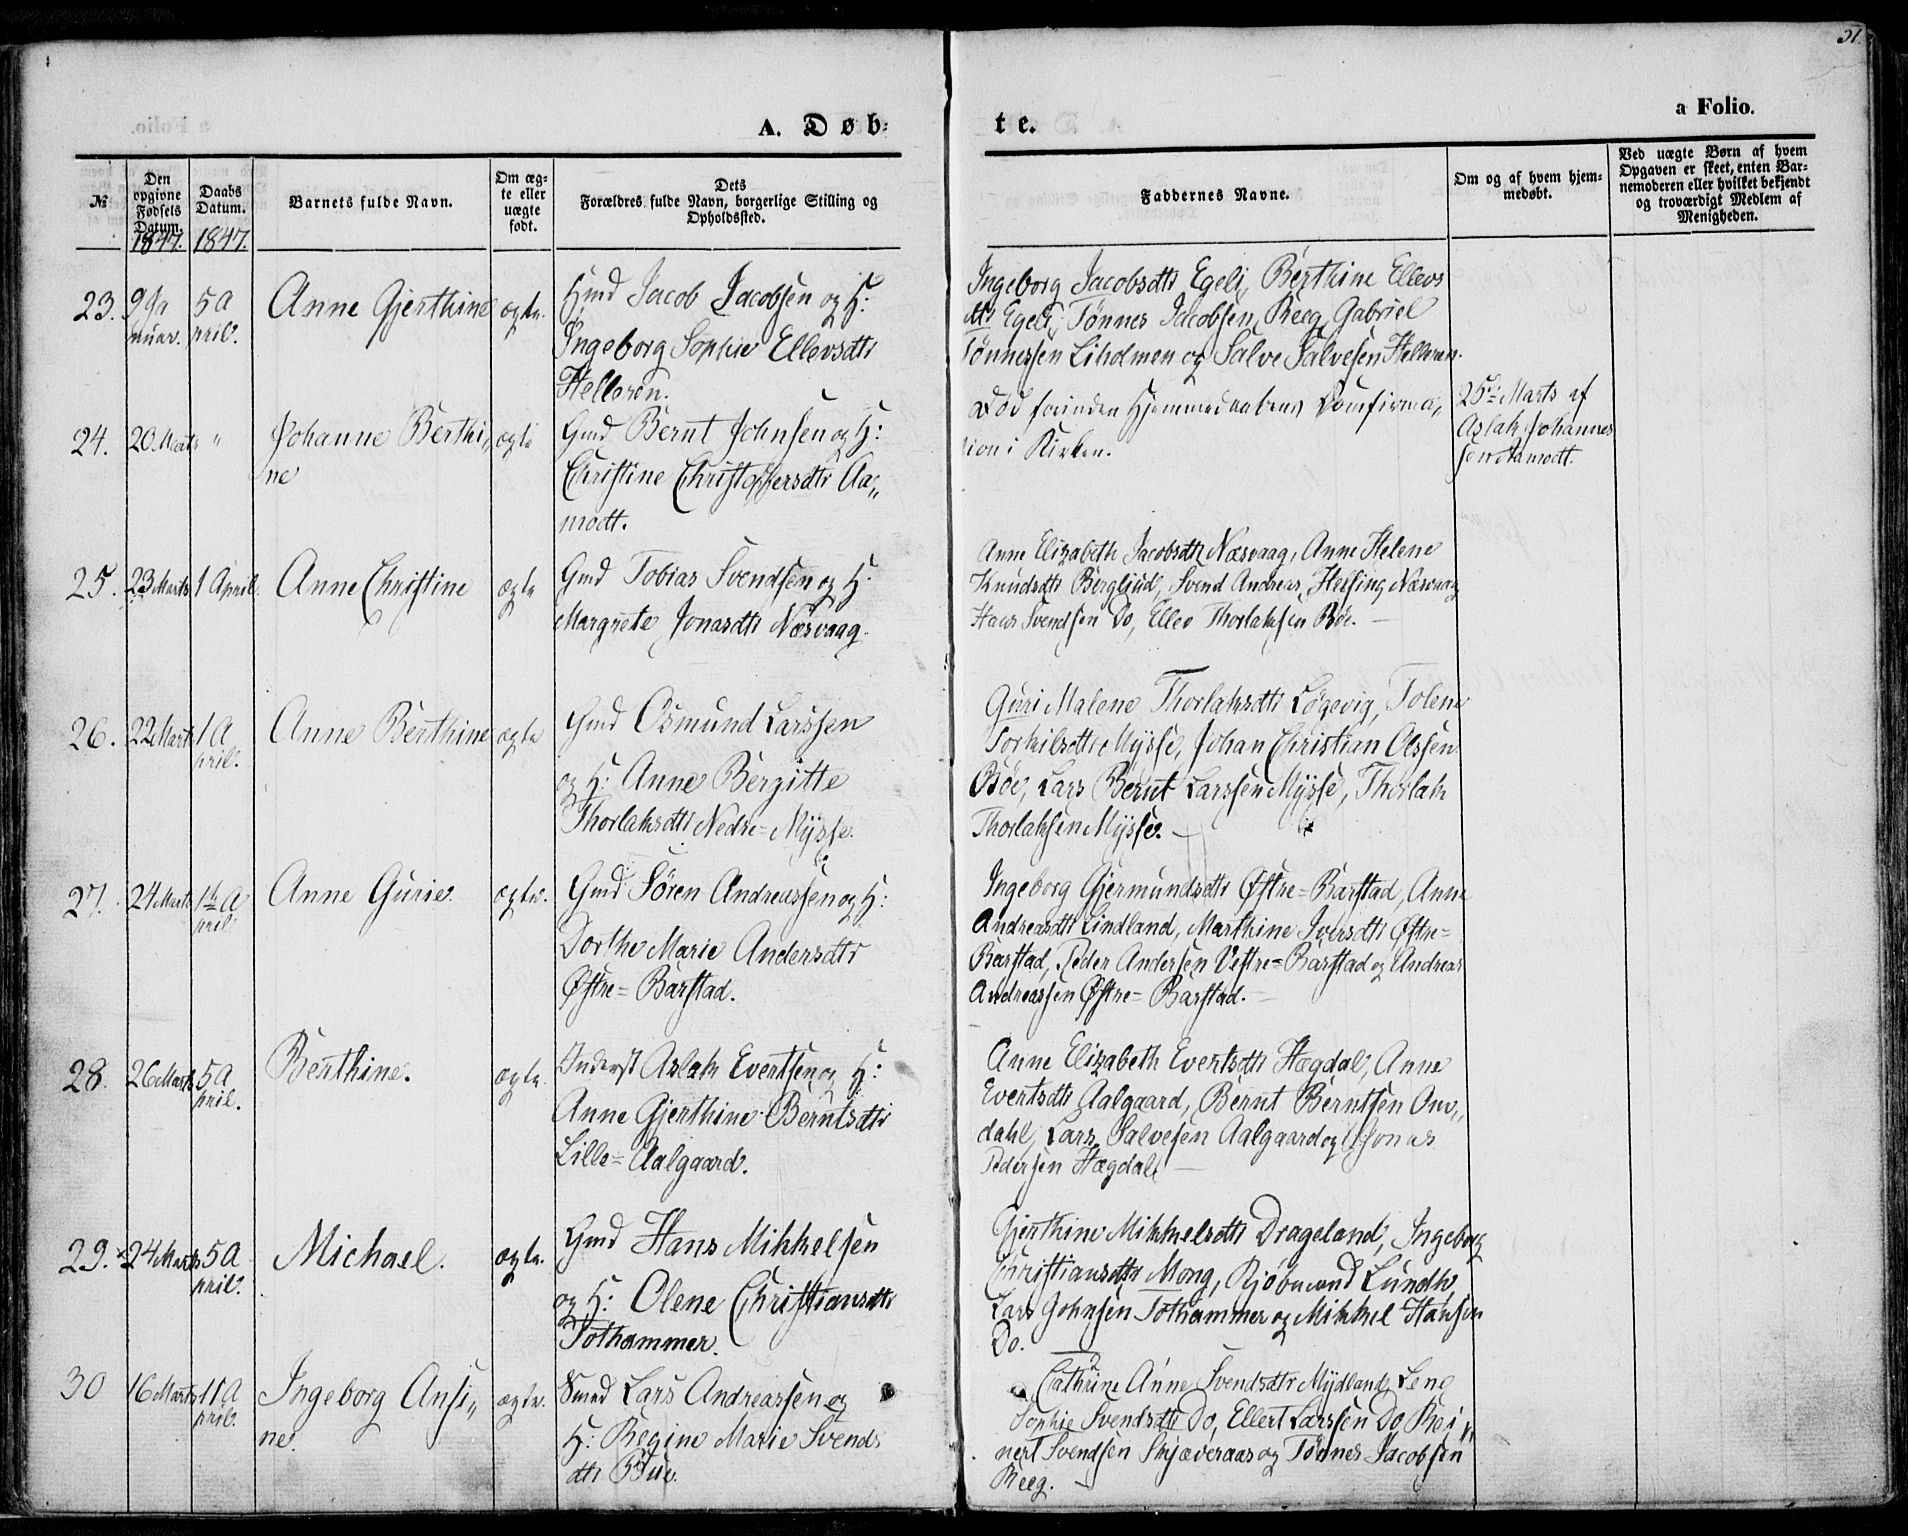 51.
A. Døb-
te.
a Folio.
№
Den opgivne Fødsels Datum.
Daabs Datum.
Barnets fulde Navn.
Om ægte eller uægte født.
Dets Forældres fulde Navn, borgerlige Stilling og Opholdssted.
Faddernes Navne.
Om og af hvem hjemmedøbt.
Ved uægte Børn af hvem Opgaven er skeet, enten Barnemoderen eller hvilket bekjendt og troværdigt Medlem af Menigheden.
1847. 1847.
23. 9 Ja
nuar.
5 A
pril.
Anne Gjerthine
ægte.
Hmd Jacob Jacobsen og H:
Ingeborg Sophie Ellevsdtr
Helleren.
Ingeborg Jacobsdtr Egeli, Berthine Ellevs
dtr Egeli, Tønnes Jacobsen Reeg, Gabriel
Tønnessen Liholmen og Salve Salvesen Helleren.
24. 20 Marts "
Johanne Berthi„
ne
ægte
Gmd Bernt Johnsen og H:
Christine Christophersdtr Aa„
modt.
Død forinden Hjemmedaabens Confirma„
tion i Kirken.
25de Marts af
Aslak Johannes
sen Aamodt.
25. 23 Marts 1 April.
Anne Christine
ægte
Gmd Tobias Svendsen og H.
Margrete Jonasdtr Næsvaag.
Anne Elizabeth Jacobsdtr Næsvaag, Anne Helene
Knudsdtr Bergljud, Svend Andreas Helsing Næsvaag
Hans Svendsen Do, Ellev Thorlaksen Bøe.
26. 22 Marts 1 A
pril.
Anne Berthine
ægte
Gmd Osmund Larssen
og H: Anne Bergitte
Thorlaksdtr Nedre=Mysse.
Guri Malene Thorlaksdtr Løgevig, Tolene
Torkilsdtr Mysse, Johan Christian Olssen
Bøe, Lars Bernt Larssen Mysse, Thorlak
Thorlaksen Mysse.
27. 24 Marts 1ste A
pril
Anne Gurie.
ægte.
Gmd Søren Andreassen og H:
Dorthe Marie Andersdtr
Østre=Barstad.
Ingeborg Gjermundsdtr Østre=Barstad, Anne
Andreasdtr Lindland, Marthine Iversdtr Østre=
Barstad, Peder Andersen Vestre=Barstad og Andreas
Andreassen Østre=Barstad.
28. 26 Marts 5 A
pril.
Berthine.
ægte.
Inderst Aslak Evertsen og H:
Anne Gjerthine Berntsdtr
Lille=Aalgaard.
Anne Elizabeth Evertsdtr Hægdal, Anne
Evertsdtr Aalgaard, Bernt Berntsen Om„
dahl, Lars Salvesen Aalgaard og Jonas
Pedersen Hægdal
29. 24 Marts 5 A
pril.
Michael.
ægte.
Gmd Hans Mikkelsen
og H: Olene Christiansdtr
Tothammer.
Gjerthine Mikkelsdtr Drageland, Ingeborg
Christiansdtr Mong, Kjøbmand Lundh,
Lars Johnsen Tothammer og Mikkel Hansen
Do.
30 16 Marts 11 A
pril.
Ingeborg Ansi„
ne.
ægte.
Smed Lars Andreassen og
H: Regine Marie Svends
dtr Bue.
Cathrine Anne Svendsdtr Mydland, Lene
Sophie Svendsdtr Do, Ellert Larssen Do Rei„
nert Svendsen Skjæveraas og Tønnes Jacobsen
Reeg.